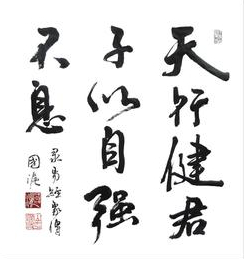 天行健君
子以自强
不息
录易经象传
国